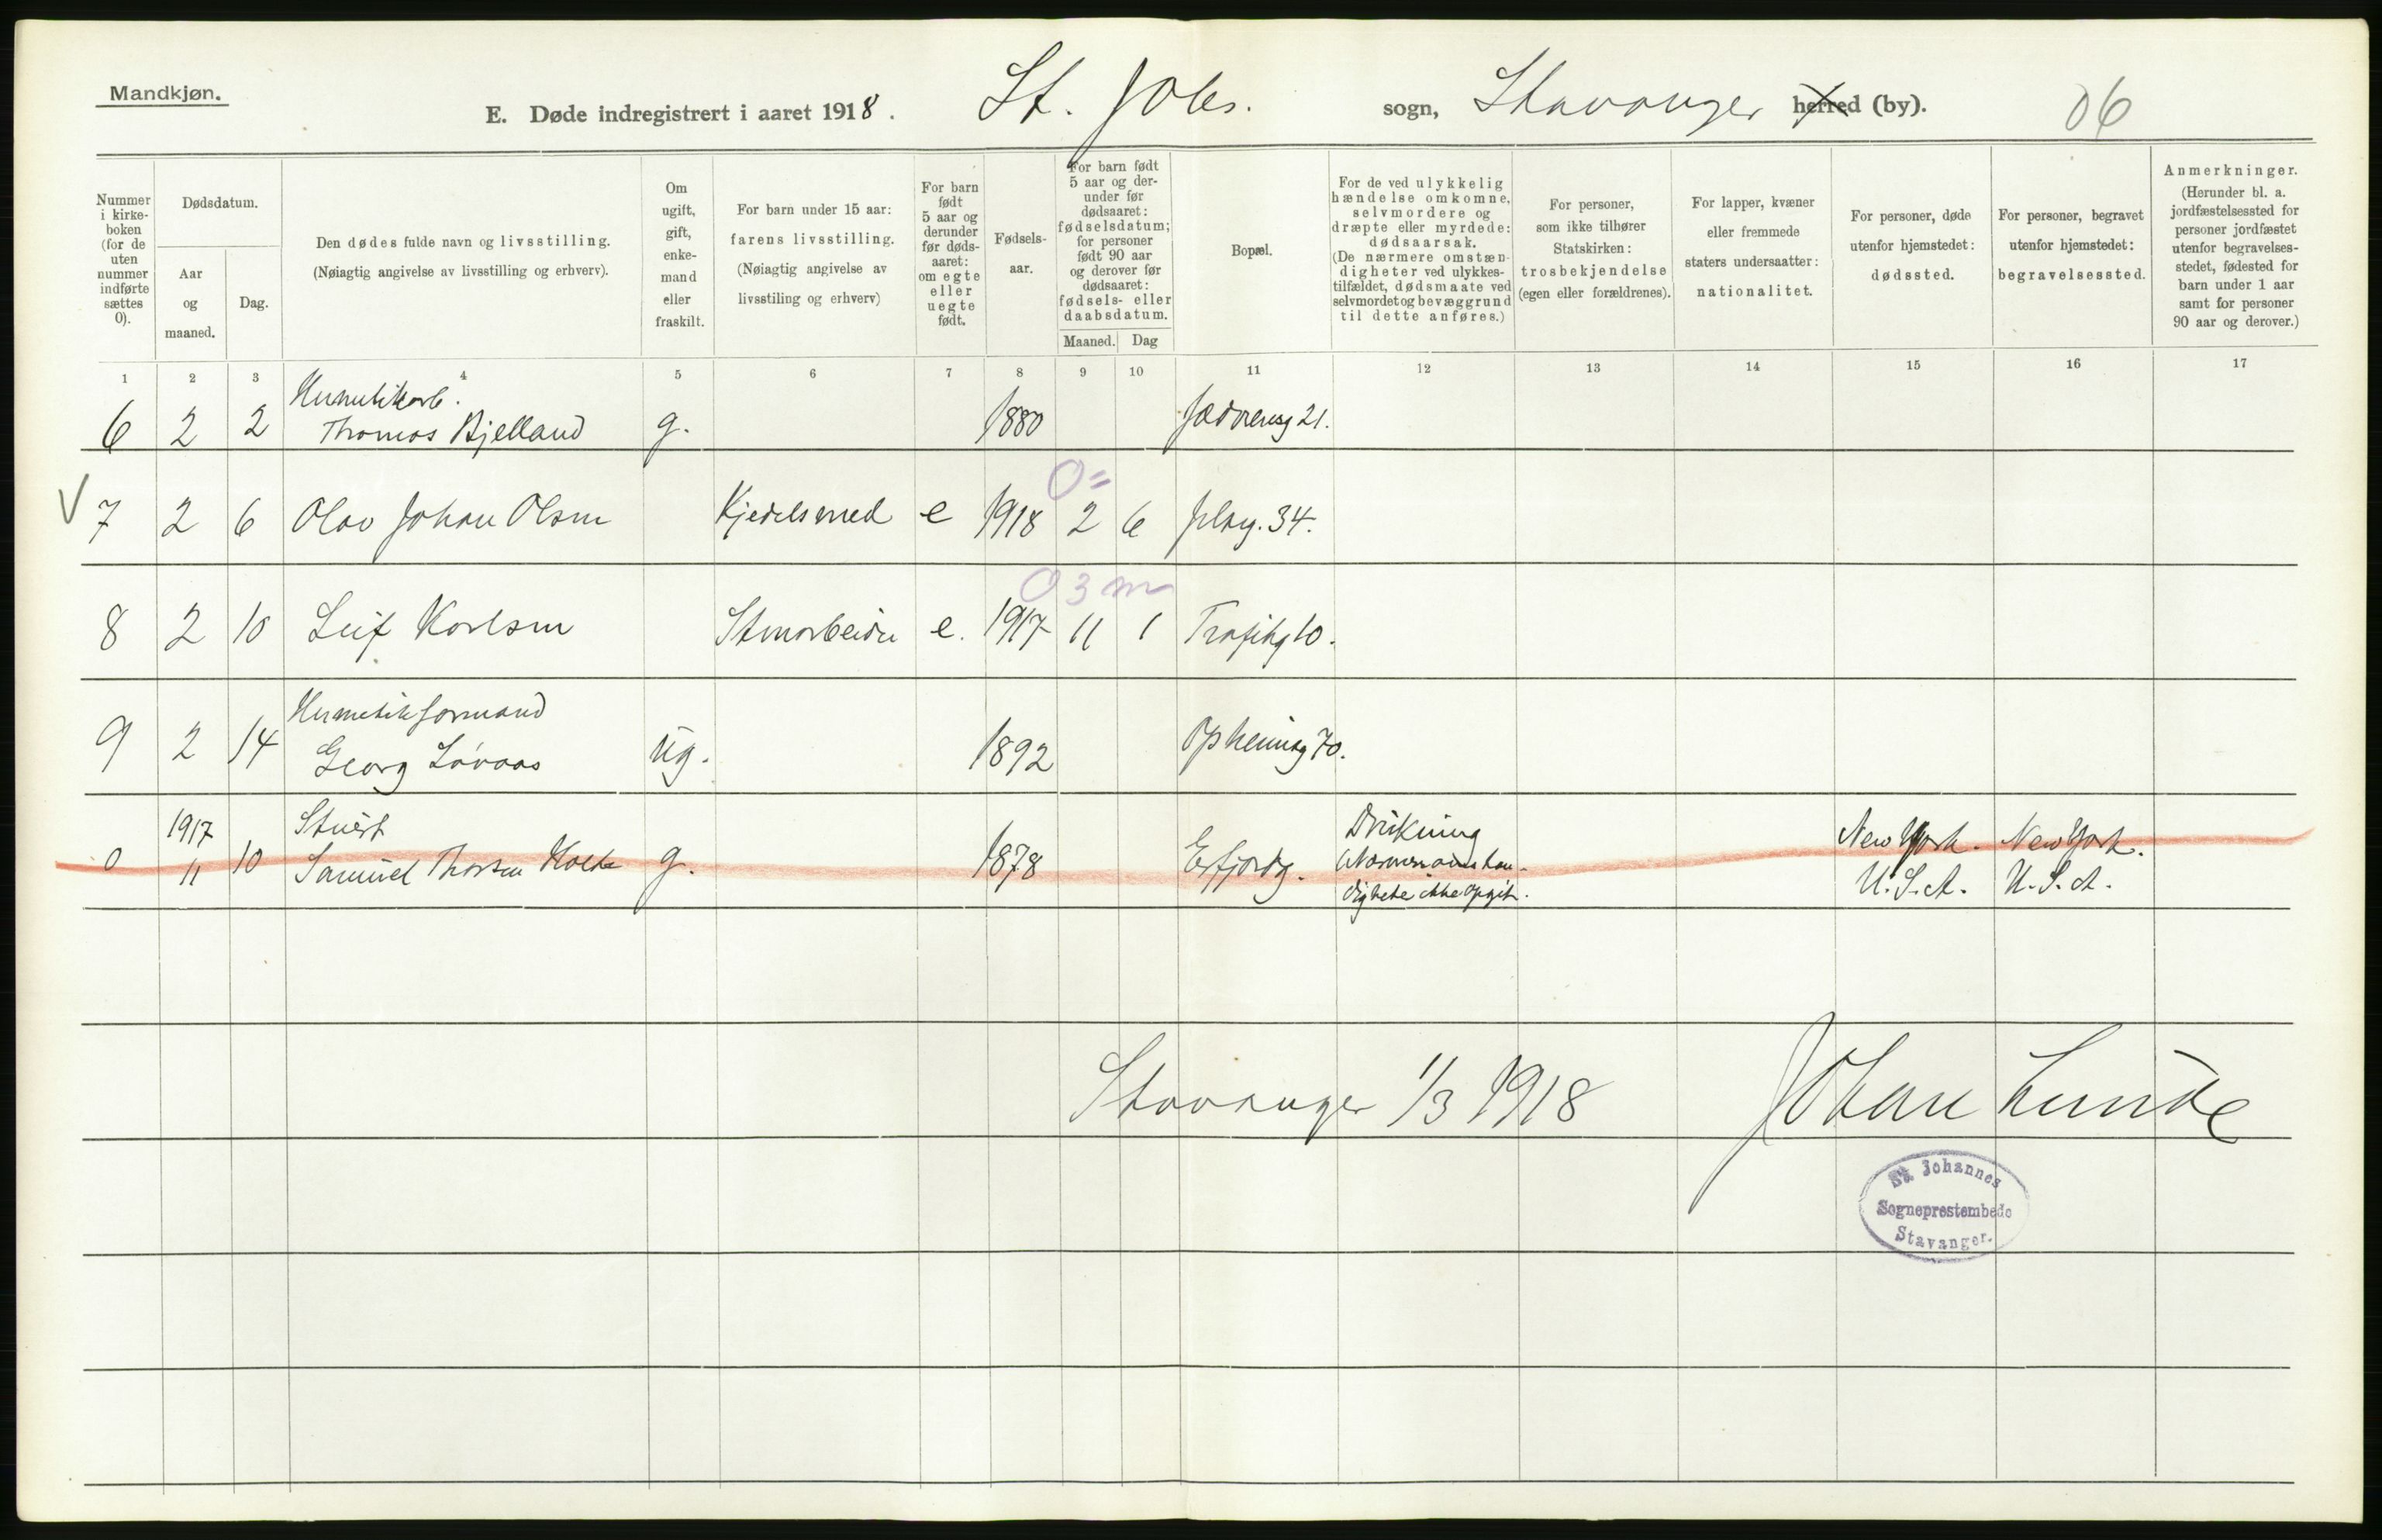 Mandkjøn.
E. Døde indregistrert i aaret 1918. St. Johs. sogn, Stavanger herred (by). 06
Nummer i kirkeboken (for de uten nummer indførte sættes 0).
Dødsdatum.
Aar og maaned.
Dag.
Den dødes fulde navn og livsstilling.
(Nøiagtig angivelse av livsstilling og erhverv).
Om ugift, gift, enkemand eller fraskilt.
For barn under 15 aar:
farens livsstilling.
(Nøiagtig angivelse av
livsstiling og erhverv)
For barn født 5 aar og derunder før dødsaaret: om egte eller uegte født.
Fødselsaar.
For barn født 5 aar og derunder før dødsaaret: fødselsdatum; for personer født 90 aar og derover før dødsaaret: fødsels- eller daabsdatum.
Maaned. Dag
Bopæl.
For de ved ulykkelig hændelse omkomne, selvmordere og dræpte eller myrdede: dødsaarsak.
(De nærmere omstændigheter ved ulykkestilfældet, dødsmaate ved selvmordet og bevæggrund til dette anføres.)
For personer, som ikke tilhører Statskirken: trosbekjendelse (egen eller forældrenes).
For lapper, kvæner eller fremmede staters undersaatter: nationalitet.
For personer, døde utenfor hjemstedet: dødssted.
For personer, begravet utenfor hjemstedet: begravelsessted.
Anmerkninger.
(Herunder bl. a. jordfæstelsessted for personer jordfæstet utenfor begravelsesstedet, fødested for barn under 1 aar samt for personer 90 aar og derover.)
1 2 3 4 5 6 7 8 9 10 11 12 13 14 15 16 17
Hermetikarb.
6 2 2 Thomas Bjelland g. 1880 Jædrensg 21.
0=
V 7 2 6 Olav Johan Olsen Kjedelsmed e 1918 2 6 34.
0 3 m
8 2 10 Leif Karlsen Stenarbeider e. 1917 11 1 Trafikg 10.
Hermetikformand
9 2 14 Georg Løvaas ug. 1892 Opheimsg 70.
1917 Stuert Drukning New York. New York.
0 11 10 Samuel Thorsen Holte g. 1878 Erfjordg. Nærmere omstændigheter ikke opgit. U.S.A. U.S.A.
Stavanger 1/3 1918 Johan Lunde
St Johannes
Sogneprestembede
Stavanger.